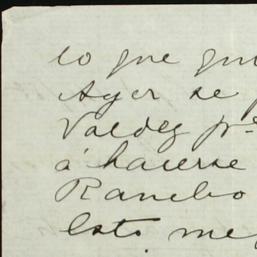 lo que
Ayer se
Valdez pr
á hacerse
Rancho
Esto me